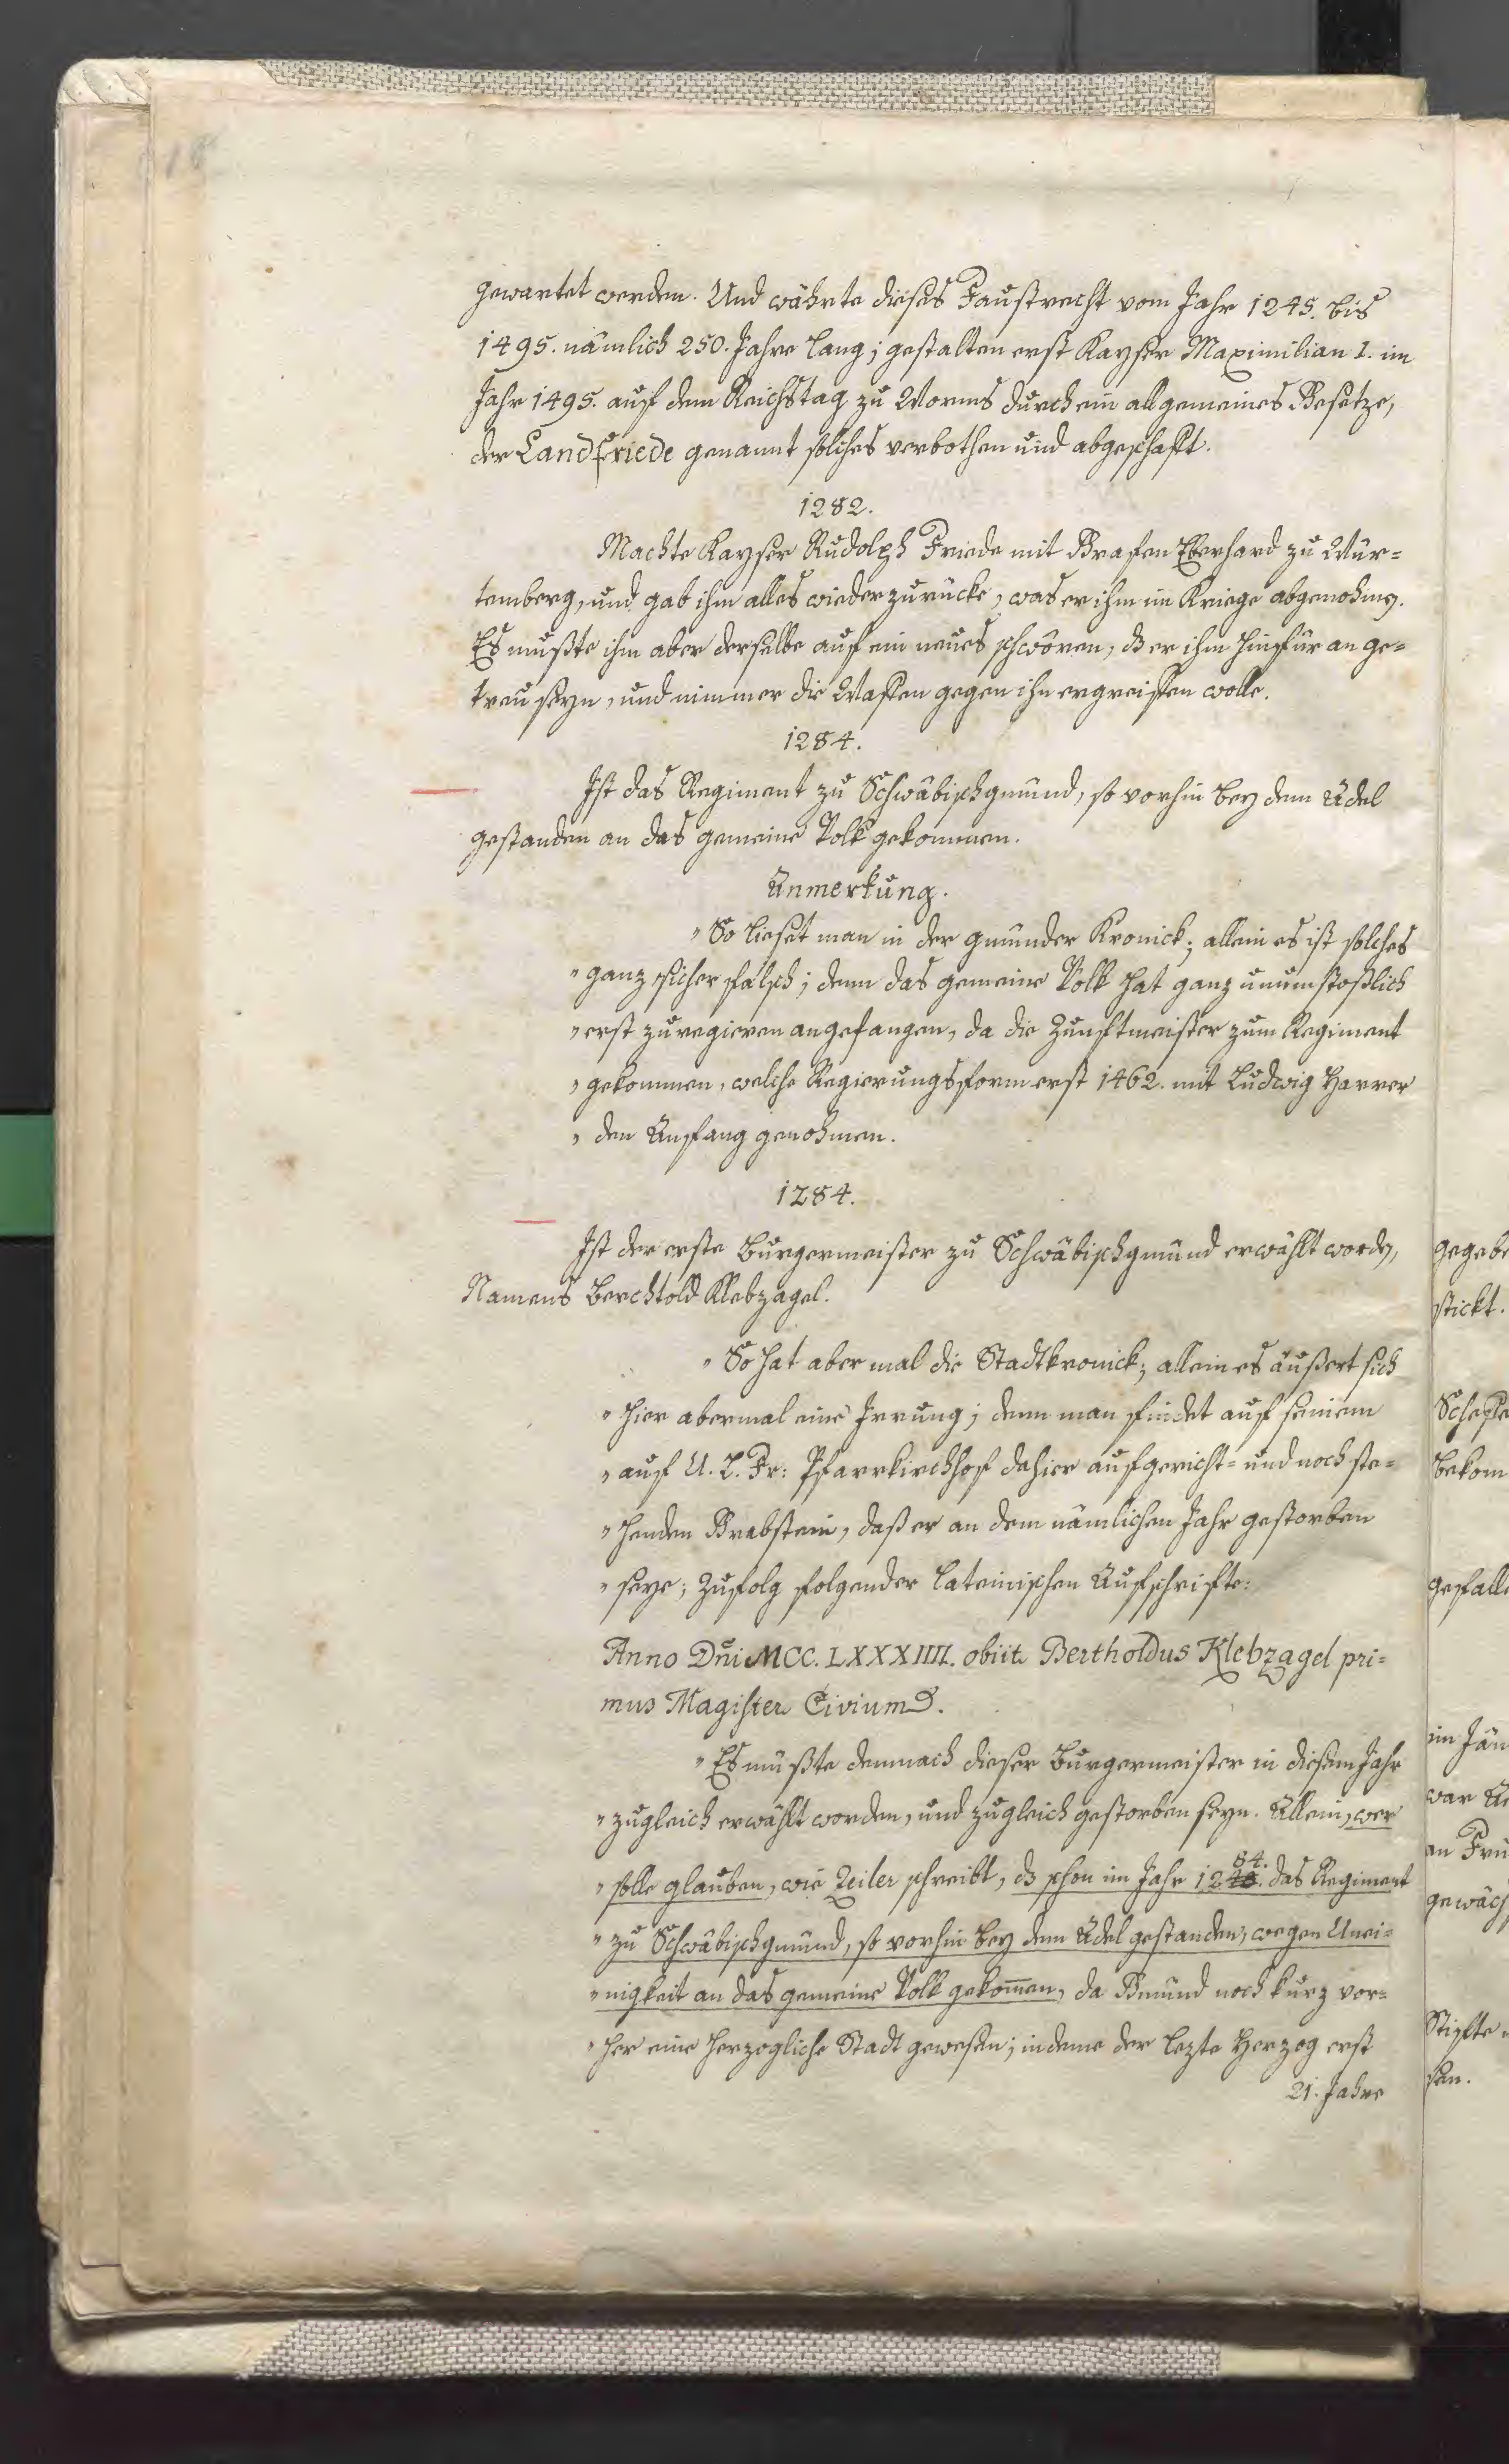 18
gewartet werden. Und währte dieses Faustrecht vom Jahr 1245. bis
1495. nämlich 250. Jahre lang; gestalten erst Kayser Maximilian I. im
Jahr 1495. auf dem Reichstag zu Worms durch ein allgemeines Gesetze,
der Landfriede genannt solches verbothen und abgeschaft.
1282.
Machte Kayser Rudolph Friede mit Grafen Eberhard zu Wür=
temberg, und gab ihm alles wieder zurücke, was er ihm im Kriege abgenohmen.
Es mußte ihm aber derselbe auf ein neues schwören, dß er ihm hinfür an ge=
treu seyn, und nimmer die Waffen gegen ihn ergreiffen wolle.
1284.
Ist das Regiment zu Schwäbischgmünd, so vorhin bey dem Adel
gestanden an das gemeine Volk gekommen.
Anmerkung.
" So lieset man in der gmünder Kronick; allein es ist solches
" ganz sicher falsch; denn das gemeine Volk hat ganz unumstoßlich
" erst zu regieren angefangen, da die Zunftmeister zum Regiment
" gekommen, welche Regierungsform erst 1462. mit Ludwig Harrer
" den Anfang genohmen.
1284.
Ist der erste Burgermeister zu Schwäbischgmünd erwählt worden,
Namens Berchtold Klebzagel.
" So hat aber mal die Stadtkronick; allein es äußert sich
" hier abermal eine Irrung; denn man findet auf seinem
" auf U. L. Fr: Pfarrkirchhof dahier aufgericht= und noch ste=
" henden Grabstein, daß er an dem nämlichen Jahr gestorben
" seye; Zufolg folgender lateinischen Aufschrifte:
Anno Dn̄i MCC. LXXXIIII. obiit Bertholdus Klebzagel pri=
mus Magister Civium
" Es müßte demnach dieser Burgermeister in diesem Jahr
" zugleich erwählt worden, und zugleich gestorben seyn. Allein, wer
" solle glauben, wie Zeiler schreibt, dß schon im Jahr 1284. das Regiment
" zu Schwäbischgmünd, so vorhin bey dem Adel gestanden, wegen Unei=
" nigkeit an das gemeine Volk gekom̄en, da Gmünd noch kurz vor=
" her eine herzogliche Stadt gewesen; indeme der lezte Herzog erst
21. Jahre
gegebe
stickt.
bekom
gefall
im Jän
war
an
gewäch
Stifte
sen.